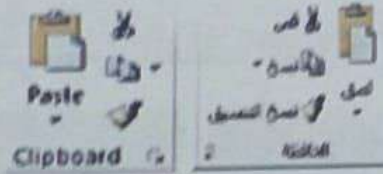 Paste
Clipboard
قص
نسخ
نسخ التنسيق
لصق
الحافظة